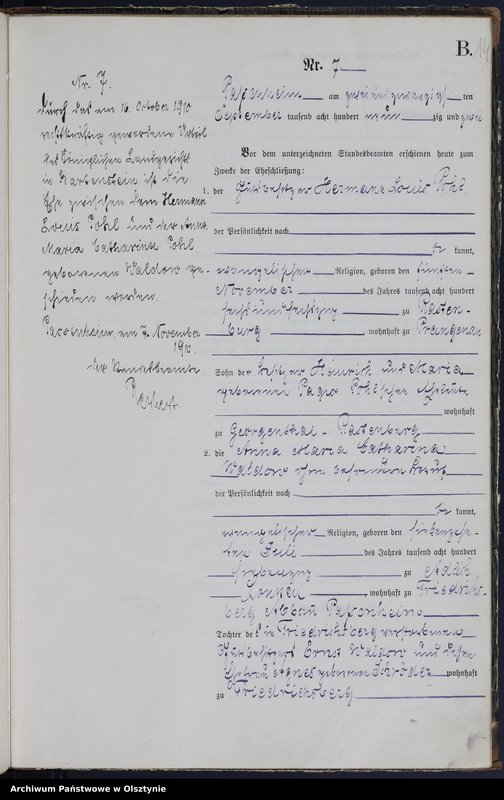 B.
Nr. 7
Nr. 7.
Durch das am 16. October 1910
rechtskräftig gewordene Urteil
des Königlichen Landgerichts
in Bartenstein ist die
Ehe zwischen dem Hermann
Louis Pohl und der Anna
Maria Catharina Pohl
geborenen Waldow ge-
schieden worden.
Passenheim, am 7. November
1910.
der Standesbeamte.
Passenheim am zwei und zwanzigsten
September tausend acht hundert neunzig und zwei
Vor dem unterzeichneten Standesbeamten erschienen heute zum
Zwecke der Eheschließung:
1. der Gutsbesitzer Hermann Louis Pohl
der Persönlichkeit nach
be kannt,
evangelischer Religion, geboren den fünften
November des Jahres tausend acht hundert
sechs und sechszig zu Rasten-
burg, wohnhaft zu
Sohn der Besitzer Heinrich und Maria
geborenen Pohl'schen Eheleute
wohnhaft
zu Georgenthal - Rastenburg
2. die Anna Maria Catharina
Waldow ohne besonderen Beruf
der Persönlichkeit nach
be kannt,
evangelischer Religion, geboren den siebenzehn-
ten Juli des Jahres tausend acht hundert
siebenzig zu Adlig
, wohnhaft zu Friedrichs-
berg Abbau Passenheim
Tochter des in Friedrichsberg verstorbenen
Gutsbesitzers Ernst Waldow und dessen
Ehefrau Agnes geborenen Schröder wohnhaft
zu Friedrichsberg
Archiwum Państwowe w Olsztynie